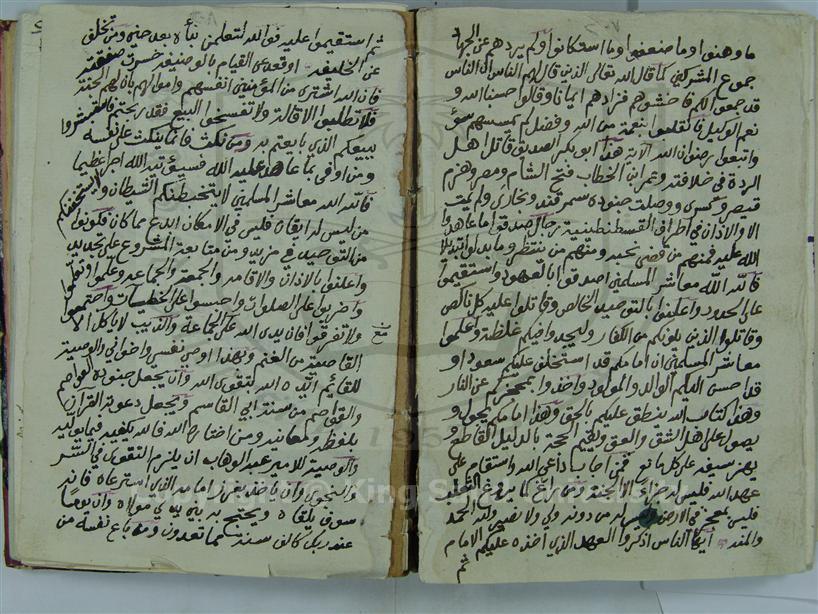 ما وهنوا وما ضعفوا وما استكانوا ولم يردهم عن الجهاد
جموع المشركين كما قال الله تعالى الذين قال لهم الناس ان الناس
قد جمعوا لكم فاخشوهم فزادهم ايمانا وقالوا حسبنا الله و
نعم الوكيل فانقلبوا بنعمة من الله وفضل لم يمسسهم سوء
واتبعوا رضوان الله الآية هذا ابو بكر الصديق قاتل اهل
الردة في خلافته وعمر ابن الخطاب فتح الشام ومصر وهزم
قيصر وكسرى ووصلت جنوده سمرقند وبخارى ولم يمت
الا والاذان في اطراف القسطنطينية رجال صدقوا ما عاهدوا
الله عليه فمنهم من قضى نحبه ومنهم من ينتظر وما بدلوا تبديلا
فالله الله معاشر المسلمين اصدقوا العهود واستقيموا
على الحدود واعلنوا بالتوحيد الخالص وقاتلوا عليه كل ناكص
وقاتلوا الذين يلونكم من الكفار وليجدوا فيكم غلظة واعلموا
معاشر المسلمين ان امامكم قد استخلف عليكم سعود او
قد احسن اليكم الوالد والمولود واخذوا بحجزكم عن النار
وهذا كتاب الله ينطق عليكم بالحق وهذا امامكم يجول و
يصول على اهل الشقق والعقق ويقيم الحجة بالدليل القاطع و
يهز سيفه على كل مانع فمن اجاب داعي الله واستقام على
عهد الله فليس له جزاء الا الجنة ومن راغ كما يروغ الثعلب
فليس بمعجز في الارض وليس له من دونه ولي ولا نصير ولله الحمد
والمنة ايها الناس اذكروا العهد الذي اخذه عليكم الامام
ثم
ثم استقيموا عليه فوالله لتعلمن نبأه بعد حين ومن تخلف
عن الخليفة او قعد عن القيام بالوضيفة خسرت صفقته
فان الله اشترى من المؤمنين انفسهم واموالهم بان لهم الجنة
فلا تطلبوا الاقالة ولا تفسخوا البيع فقد ربحتم فاستبشروا
ببيعكم الذي بايعتم به ومن نكث فانما ينكث على نفسه
ومن اوفى بما عاهد عليه الله فسيؤتيه الله اجرا عظيما
فالله الله معاشر المسلمين لا يتخبطنكم الشيطان ولا يستخفنكم
من ليس له ايقان فليس في الامكان ابدع مما كان فكونوا
من التوحيد في مزيد ومن متابعة المشروع على تجديد
واعلنوا بالاذان والاقامة والجمعة والجماعة وعلموا وتعلموا
واضربوا على الصلوات واحبسوا على الخطيئات واجتمعوا
ولا تفرقوا فان يد الله على الجماعة والذيب لا ياكل الا
مع
القاصية من الغنم وبهذا اوصي نفسي واخواني والوصية
للقائم ايده الله بتقوى الله وان يجعل جنوده العواصم
والقواصم من سنة ابي القاسم ويجعل دعوته القران
بلفظه ومعانيه ومن اختار الله فالله يكفيه فيما يوليه
والوصية للامير عبد الوهاب ان يلزم التقوى في السر
والنجوى وان ياخذ بعن الله الذي استرعاه فانه
سوف يلقاه ويحتج به بين يدي مولاه وان يوما
عند ربك كالف سنة مما تعدون ومن باع نفسه من